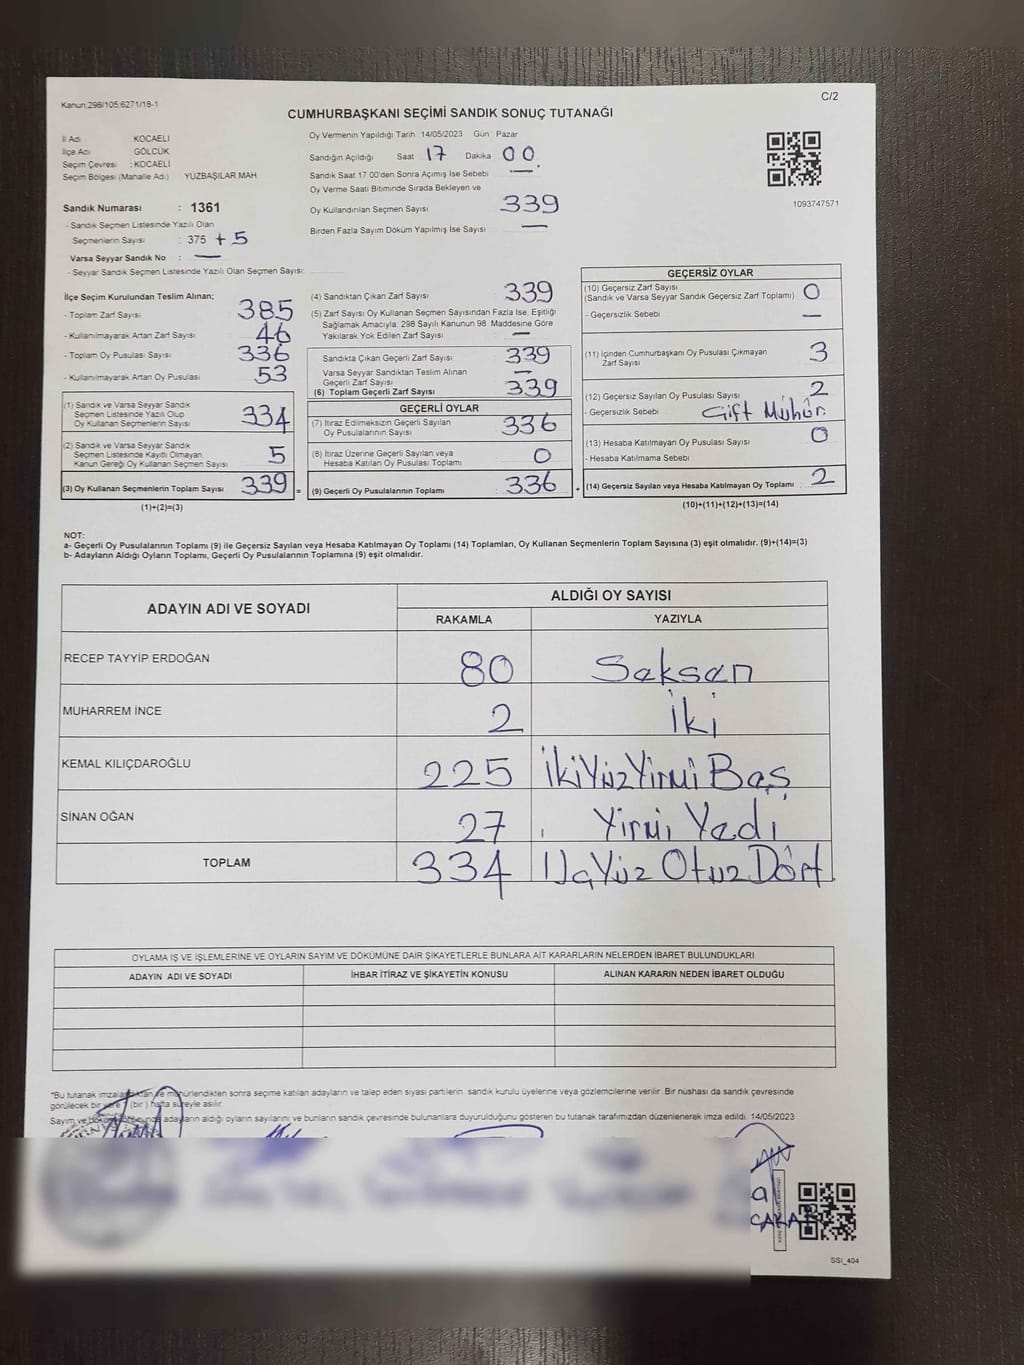 Kanun:298/105;6271/18-1
C/2
CUMHURBAŞKANI SEÇİMİ SANDIK SONUÇ TUTANAĞI
İl Adı KOCAELİ
İlçe Adı GÖLCÜK
Seçim Çevresi : KOCAELİ
Seçim Bölgesi (Mahalle Adı) YÜZBAŞILAR MAH
Sandık Numarası : 1361
- Sandık Seçmen Listesinde Yazılı Olan
Seçmenlerin Sayısı : 375 + 5
Varsa Seyyar Sandık No : —
- Seyyar Sandık Seçmen Listesinde Yazılı Olan Seçmen Sayısı
Oy Vermenin Yapıldığı Tarih :14/05/2023 Gün Pazar
Sandığın Açıldığı Saat 17 Dakika 00
Sandık Saat 17:00'den Sonra Açımış İse Sebebi —
Oy Verme Saati Bitiminde Sırada Bekleyen ve
Oy Kullandırılan Seçmen Sayısı 339
Birden Fazla Sayım Döküm Yapılmış İse Sayısı —
1093747571
İlçe Seçim Kurulundan Teslim Alınan;
- Toplam Zarf Sayısı 385
- Kullanılmayarak Artan Zarf Sayısı 46
- Toplam Oy Pusulası Sayısı 336
- Kullanılmayarak Artan Oy Pusulası 53
(1) Sandık ve Varsa Seyyar Sandık
Seçmen Listesinde Yazılı Olup
Oy Kullanan Seçmenlerin Sayısı 334
(2) Sandık ve Varsa Seyyar Sandık
Seçmen Listesinde Kayıtlı Olmayan
Kanun Gereği Oy Kullanan Seçmen Sayısı 5
(3) Oy Kullanan Seçmenlerin Toplam Sayısı 339 =
(1)+(2)=(3)
(4) Sandıktan Çıkan Zarf Sayısı 339
(5) Zarf Sayısı Oy Kullanan Seçmen Sayısından Fazla İse, Eşitliği
Sağlamak Amacıyla; 298 Sayılı Kanunun 98 Maddesine Göre
Yakılarak Yok Edilen Zarf Sayısı —
Sandıkta Çıkan Geçerli Zarf Sayısı 339
Varsa Seyyar Sandıktan Teslim Alınan
Geçerli Zarf Sayısı —
(6) Toplam Geçerli Zarf Sayısı 339
GEÇERLİ OYLAR
(7) İtiraz Edilmeksizin Geçerli Sayılan
Oy Pusulalarının Sayısı 336
(8) İtiraz Üzerine Geçerli Sayılan veya
Hesaba Katılan Oy Pusulası Toplamı 0
(9) Geçerli Oy Pusulalarının Toplamı 336 +
GEÇERSİZ OYLAR
(10) Geçersiz Zarf Sayısı
(Sandık ve Varsa Seyyar Sandık Geçersiz Zarf Toplamı) 0
- Geçersizlik Sebebi —
(11) İçinden Cumhurbaşkanı Oy Pusulası Çıkmayan
Zarf Sayısı 3
(12) Geçersiz Sayılan Oy Pusulası Sayısı 2
- Geçersizlik Sebebi Çift Mühür
(13) Hesaba Katılmayan Oy Pusulası Sayısı 0
- Hesaba Katılmama Sebebi
(14) Geçersiz Sayılan veya Hesaba Katılmayan Oy Toplamı 2
(10)+(11)+(12)+(13)=(14)
NOT:
a- Geçerli Oy Pusulalarının Toplamı (9) ile Geçersiz Sayılan veya Hesaba Katılmayan Oy Toplamı (14) Toplamları, Oy Kullanan Seçmenlerin Toplam Sayısına (3) eşit olmalıdır. (9)+(14)=(3)
b- Adayların Aldığı Oyların Toplamı, Geçerli Oy Pusulalarının Toplamına (9) eşit olmalıdır.
ADAYIN ADI VE SOYADI
ALDIĞI OY SAYISI
RAKAMLA YAZIYLA
RECEP TAYYİP ERDOĞAN 80 Seksen
MUHARREM İNCE 2 İki
KEMAL KILIÇDAROĞLU 225 İkiYüzYirmi Beş
SİNAN OĞAN 27 Yirmi Yedi
TOPLAM 334 ÜçYüz Otuz Dört
OYLAMA İŞ VE İŞLEMLERİNE VE OYLARIN SAYIM VE DÖKÜMÜNE DAİR ŞİKAYETLERLE BUNLARA AİT KARARLARIN NELERDEN İBARET BULUNDUKLARI
ADAYIN ADI VE SOYADI İHBAR İTİRAZ VE ŞİKAYETİN KONUSU ALINAN KARARIN NEDEN İBARET OLDUĞU
*Bu tutanak imzalandıktan ve mühürlendikten sonra seçime katılan adayların ve talep eden siyasi partilerin sandık kurulu üyelerine veya gözlemcilerine verilir. Bir nüshası da sandık çevresinde
görülecek bir yere 1 (bir) hafta süreyle asılır.
Sayım ve dökümü adayların aldığı oyların sayılarını ve bunların sandık çevresinde bulunanlara duyurulduğunu gösteren bu tutanak tarafımızdan düzenlenerek imza edildi. 14/05/2023
SSI_404